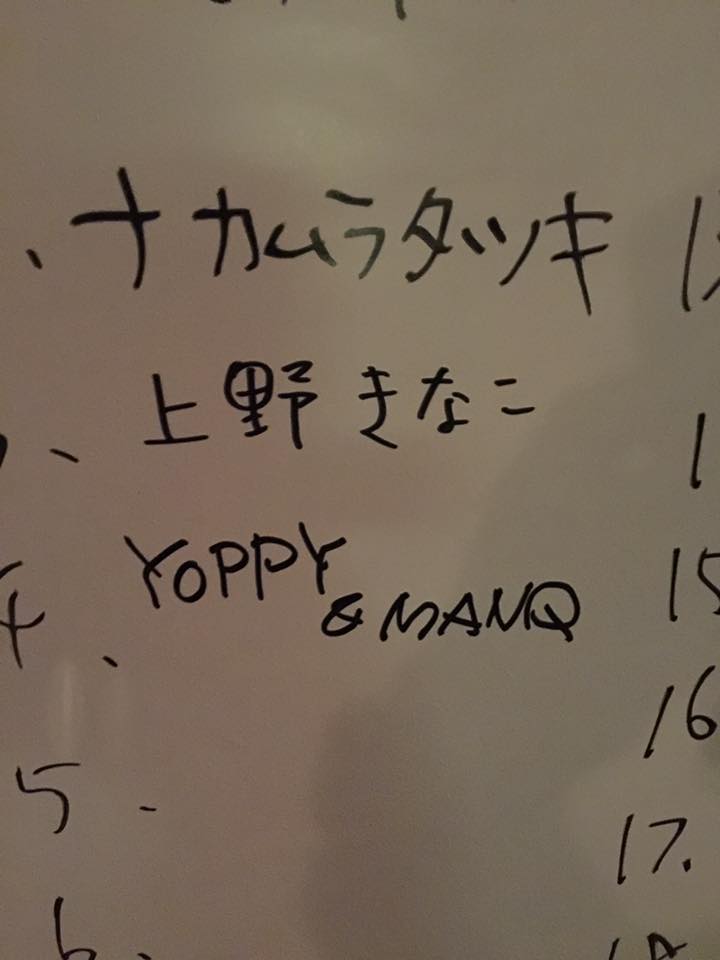 、ナカムラタツキ
、上野きなこ
4、YOPPY
& MANQ
5、
6、
15
16
17.